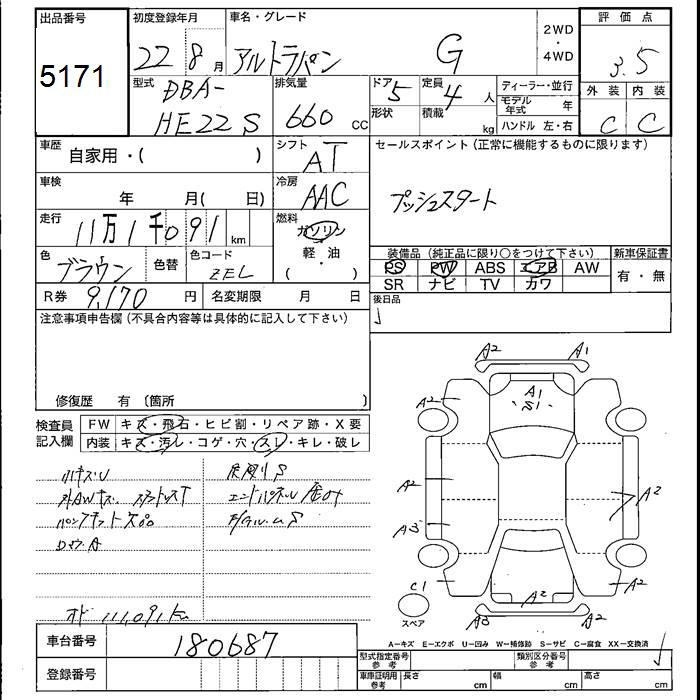 出品番号 初度登録年月 車名・グレード 評価点
5171 22年8月 アルトラパン G 2WD・4WD 3.5
型式 DBA-HE22S 排気量 660 cc ドア形状 5 定員 4 人 積載 kg ディーラー・並行 モデル年式 年 ハンドル 左・右 外装 C 内装 C
車歴 自家用・( ) シフト AT セールスポイント (正常に機能するものに限ります)
車検 年 月( 日) 冷房 AAC プッシュスタート
走行 11万1千091 km 燃料 ガソリン・軽油・( )
色 ブラウン 色替 色コード ZEL 装備品 (純正品に限り○をつけて下さい) 新車保証書
PS PW ABS エアB AW 有・無
SR ナビ TV カワ
R券 9,170円 名変期限 月 日 後日品
注意事項申告欄 (不具合内容等は具体的に記入して下さい)
修復歴 有 〔箇所 〕
検査員記入欄 FW キズ・飛石・ヒビ割・リペア跡・X要
内装 キズ・汚レ・コゲ・穴・スレ・キレ・破レ
小キズU
A2 A1
A2 A1 S1
A2 A2
A3
C1 A2 A2
スペア A3 A2
オド 111,091km
A−キズ E−エクボ U−凹み W−補修跡 S−サビ C−腐食 XX−交換済
車台番号 180687
型式指定番号 参考 類別区分番号 参考
登録番号 車庫証明用 参考 長さ cm 幅 cm 高さ cm